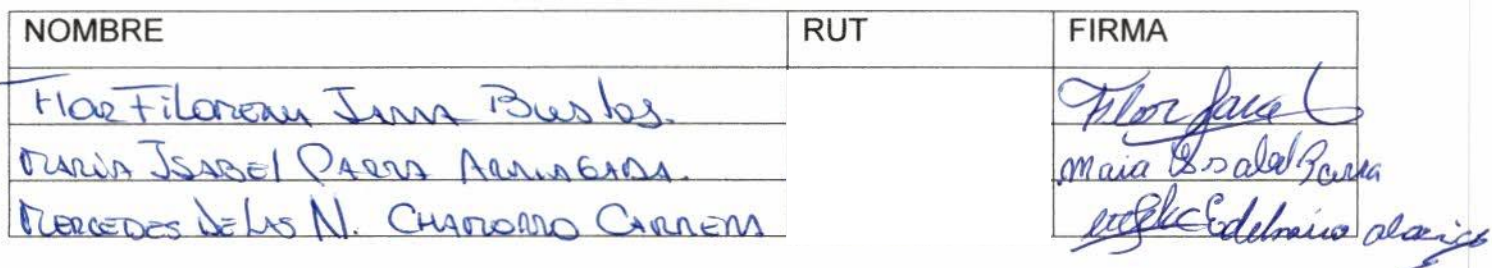 NOMBRE RUT FIRMA
Flor Filomena Jara Bustos. Flor Jara
MARIA ISABEL PARRA ARRIAGADA. Maria Isabel Parra
MERCEDES DE LAS N. CHAMORRO CARRERA Edelmira